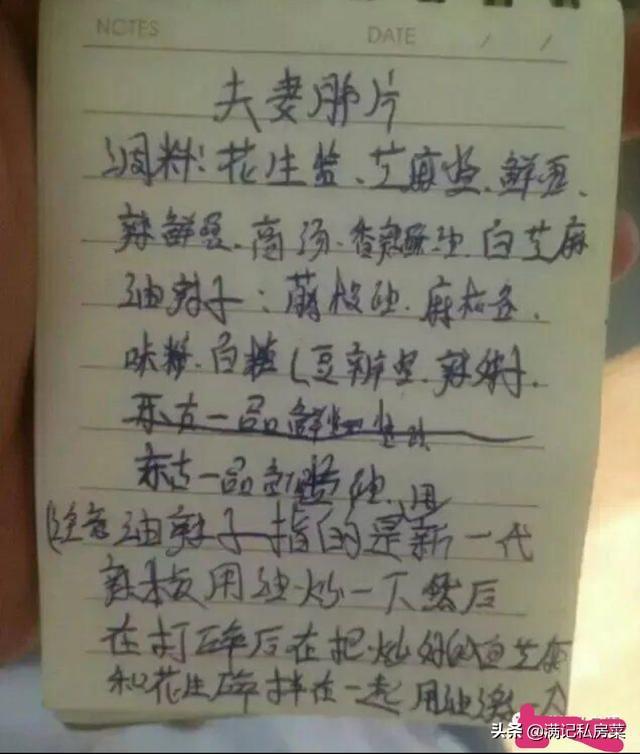 NOTES DATE / /
夫妻肺片
调料:花生酱、芝麻酱、鲜
辣鲜露、高汤、香 油、白芝麻
油辣子:藤椒油、麻
味粉、白糖(豆瓣酱、辣 )、
东古一品鲜
东古一品鲜酱油 用
(注意油辣子指的是新一代
辣椒用油炒一下然后
在打碎后在把炒好的白芝麻
和花生碎拌在一起用油激
头条 @满记私房菜